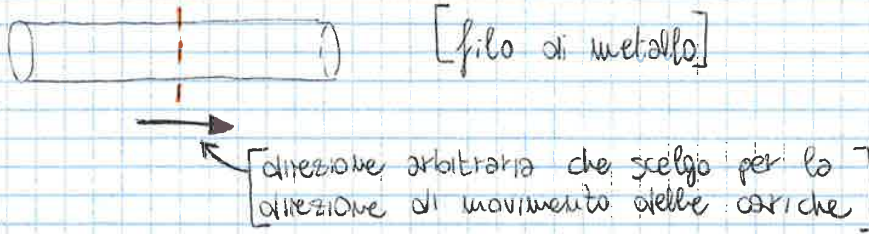 [filo di metallo]
[direzione arbitraria che scelgo per la]
[direzione di movimento delle cariche]